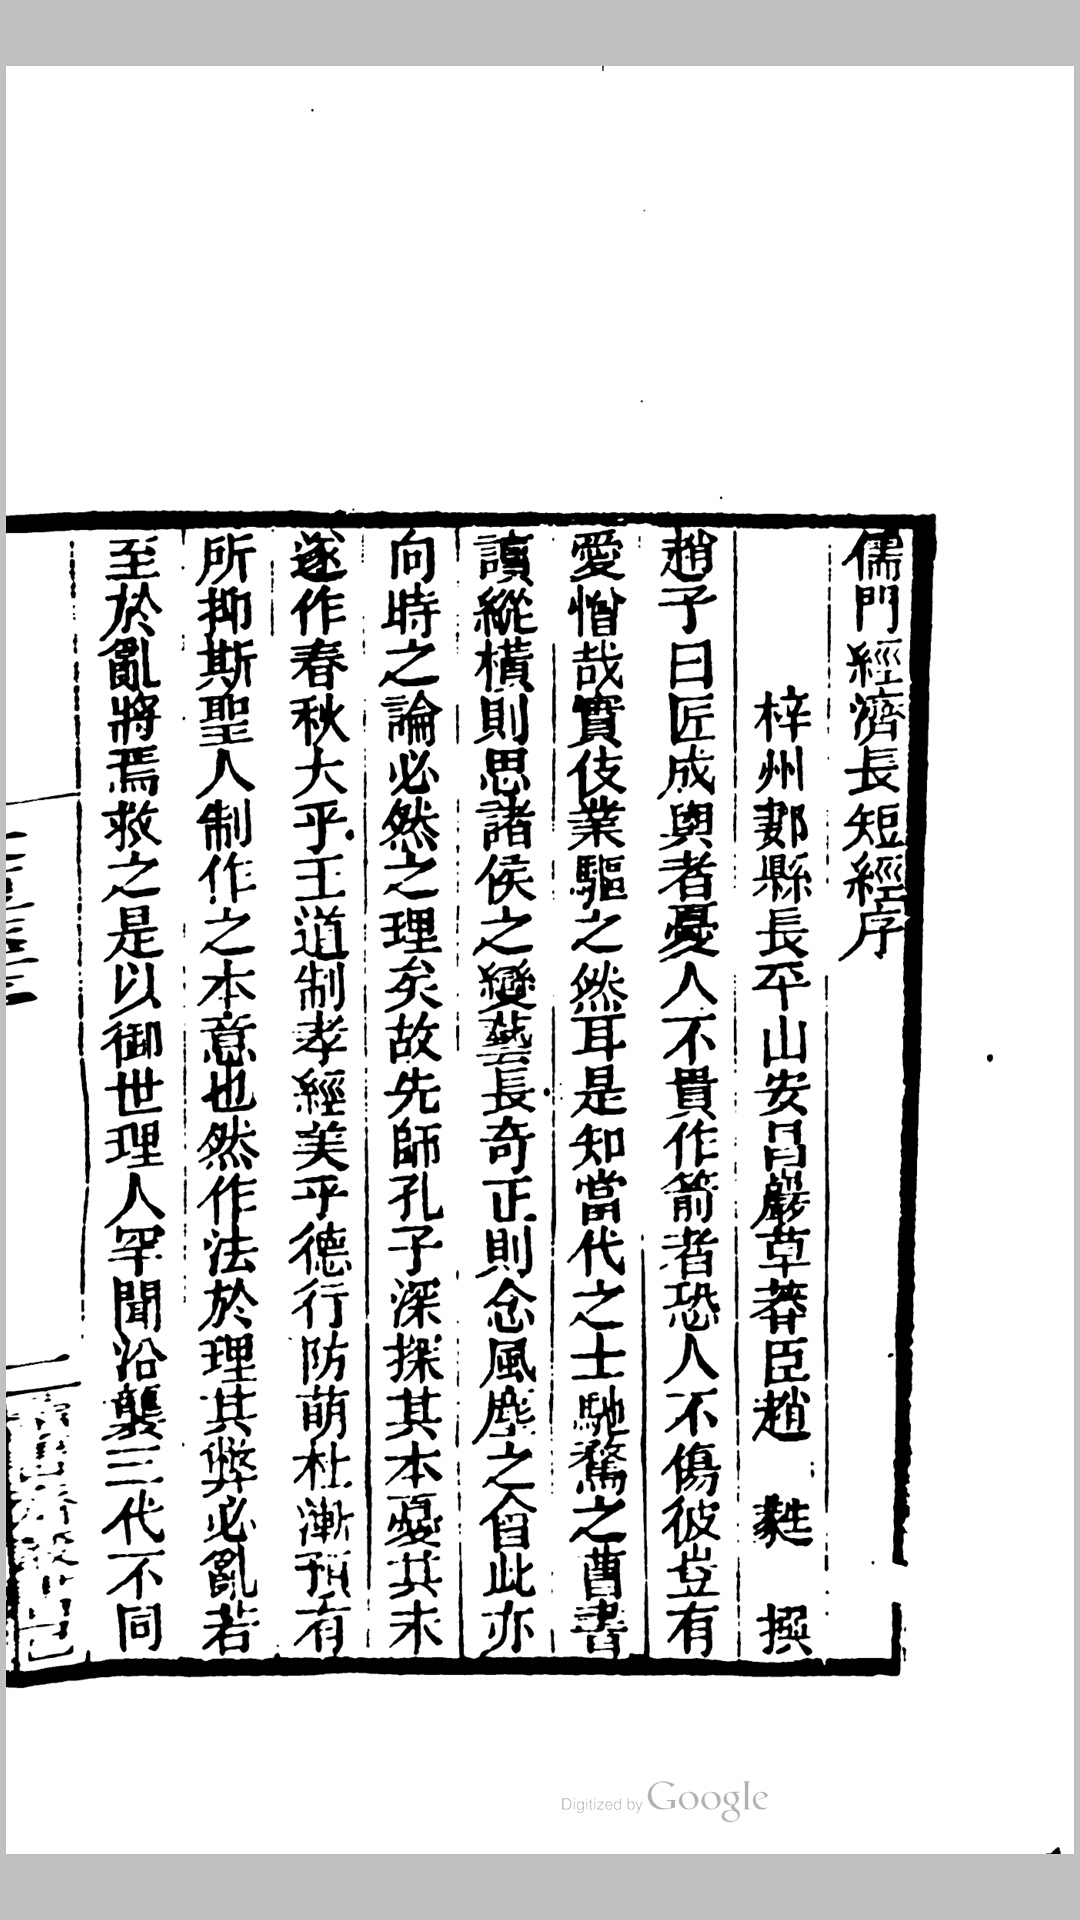 儒門經濟長短經序
梓州郪縣長平山安昌巖草莽臣趙 蕤 撰
趙子曰匠成輿者憂人不貴作箭者恐人不傷彼豈有
愛憎哉實伎業驅之然耳是知當代之士馳騖之曹書
讀縱橫則思諸侯之變藝長奇正則念風塵之會此亦
向時之論必然之理矣故先師孔子深探其本憂其末
遂作春秋大乎王道制孝經美乎德行防萌杜漸預有
所抑斯聖人制作之本意也然作法於理其弊必亂若
至於亂將焉救之是以御世理人罕聞沿襲三代不同
Digitized by Google